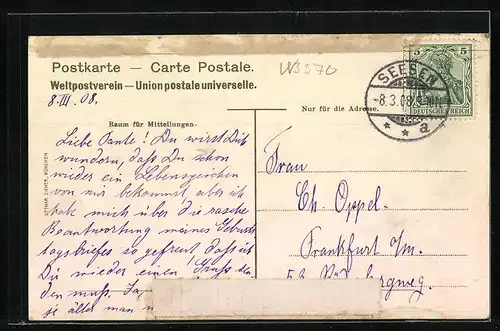 Postkarte — Carte Postale.
Weltpostverein — Union postale universelle.
WB570
8.III.08.
Raum für Mitteilungen.
Nur für die Adresse.
SEESEN
8.3.08
* * a
5 5
DEUTSCHES REICH
OTTMAR ZIEHER, MÜNCHEN
Liebe Tante! Du wirst Dich
wundern, daß Du schon
wieder ein Lebenszeichen
von mir bekommst, aber ich
habe mich über die rasche
Beantwortung meines Geburts
tagsbriefes so gefreut daß ich
Du wieder einen Gruß sen
den muß. Ja,
je älter man
Frau
Ch. Oppel.
Frankfurt a/m.